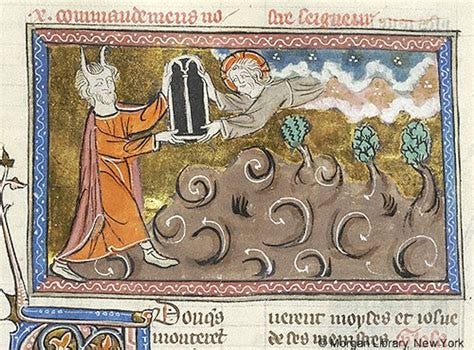 x. commandemens no stre seigneur
Donqs
monteret
uerent moyses et iosue
de ses
© Morgan Library, New York